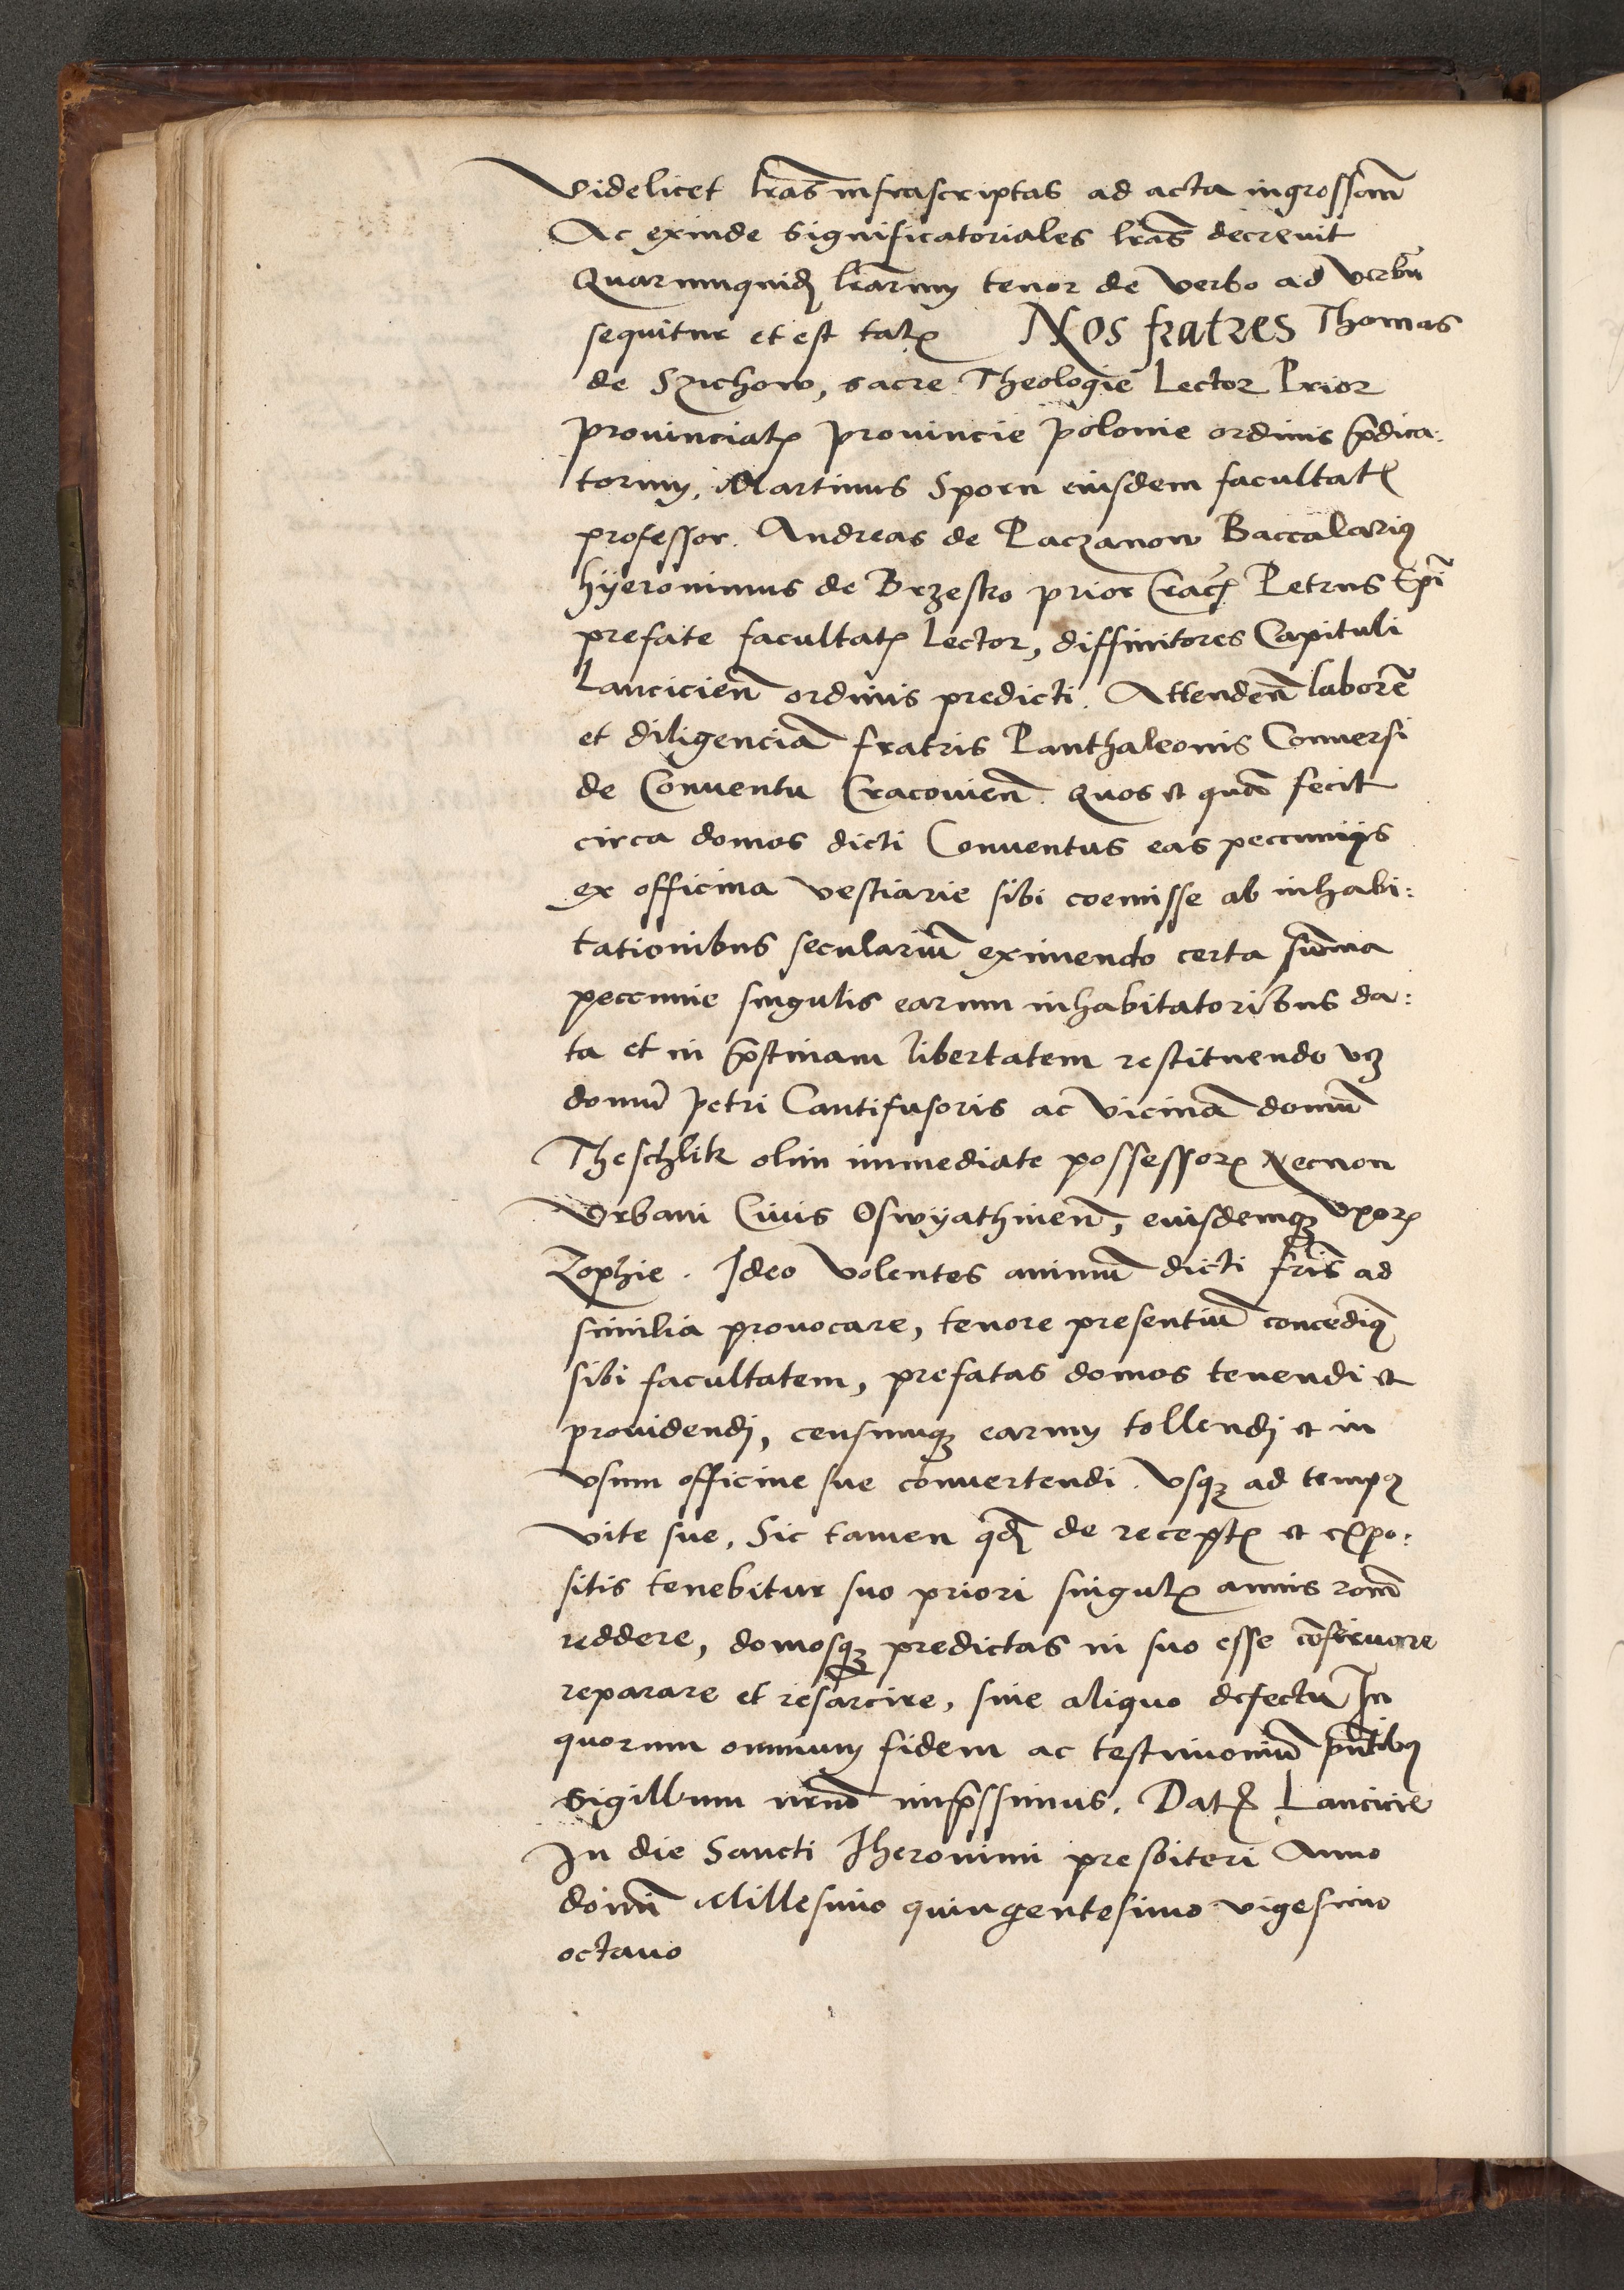 Videlicet lr̃as infrascriptas ad acta ingrossam̃
Ac exinde significatoriales lr̃as decreuit
Quarumquidꝫ lr̃arum tenor de verbo ad verbũ
sequitur et est talꝭ Nos fratres Thomas
de Szichow, sacre Theologie Lector Prior
prouincialꝭ prouincie polonie ordinis p̃dica:
torum, Martinus Sporn eiusdem facultatꝭ
professor. Andreas de Paczanow Baccalariꝰ
hÿeronimus de Brzesko prior Cracꝭ Petrus Ep̃i
prefate facultatꝭ Lector, diffinitores Capituli
Lancicien̄ ordinis predicti. Attenden̄ laborẽ
et diligenciã fratris Panthaleonis Conuersi
de Conuentu Cracouien̄. quos et quã fecit
circa domos dicti Conuentus eas peccunijs
ex officina vestiarie sibi coemisse ab inhabi:
tationibus seculariũ eximendo certa sum̃a
peccunie singulis earum inhabitatoribus da:
ta et in p̃stinam libertatem restituendo vꝫ
domũ petri Cantifusoris ac vicinã domũ
Theschlik olim immediate possessorꝭ Necnon
Vrbani Ciuis Oswÿathinen̄, eiusdemqꝫ vxorꝭ
Zophie. Ideo volentes animũ dicti fr̃is ad
similia prouocare, tenore presentiũ concedimꝰ
sibi facultatem, prefatas domos tenendi et
prouidendj, censumqꝫ earum tollendj et in
vsum officine sue conuertendi. vsqꝫ ad tempꝰ
vite sue, Sic tamen qdꝫ de receptꝭ et expo:
sitis tenebitur suo priori singulꝭ annis rom̃
reddere, domosqꝫ predictas in suo esse cõseruare
reparare et resarcire, sine aliquo defectu In
quorum omnium fidem ac testimoniũ pñtibꝰ
sigillum nr̃m̃ imp̃ssimus. Datꝭ Lancicie
In die Sancti Jheronimi presbiteri Anno
domĩ Millesimo quingentesimo vigesimo
octauo